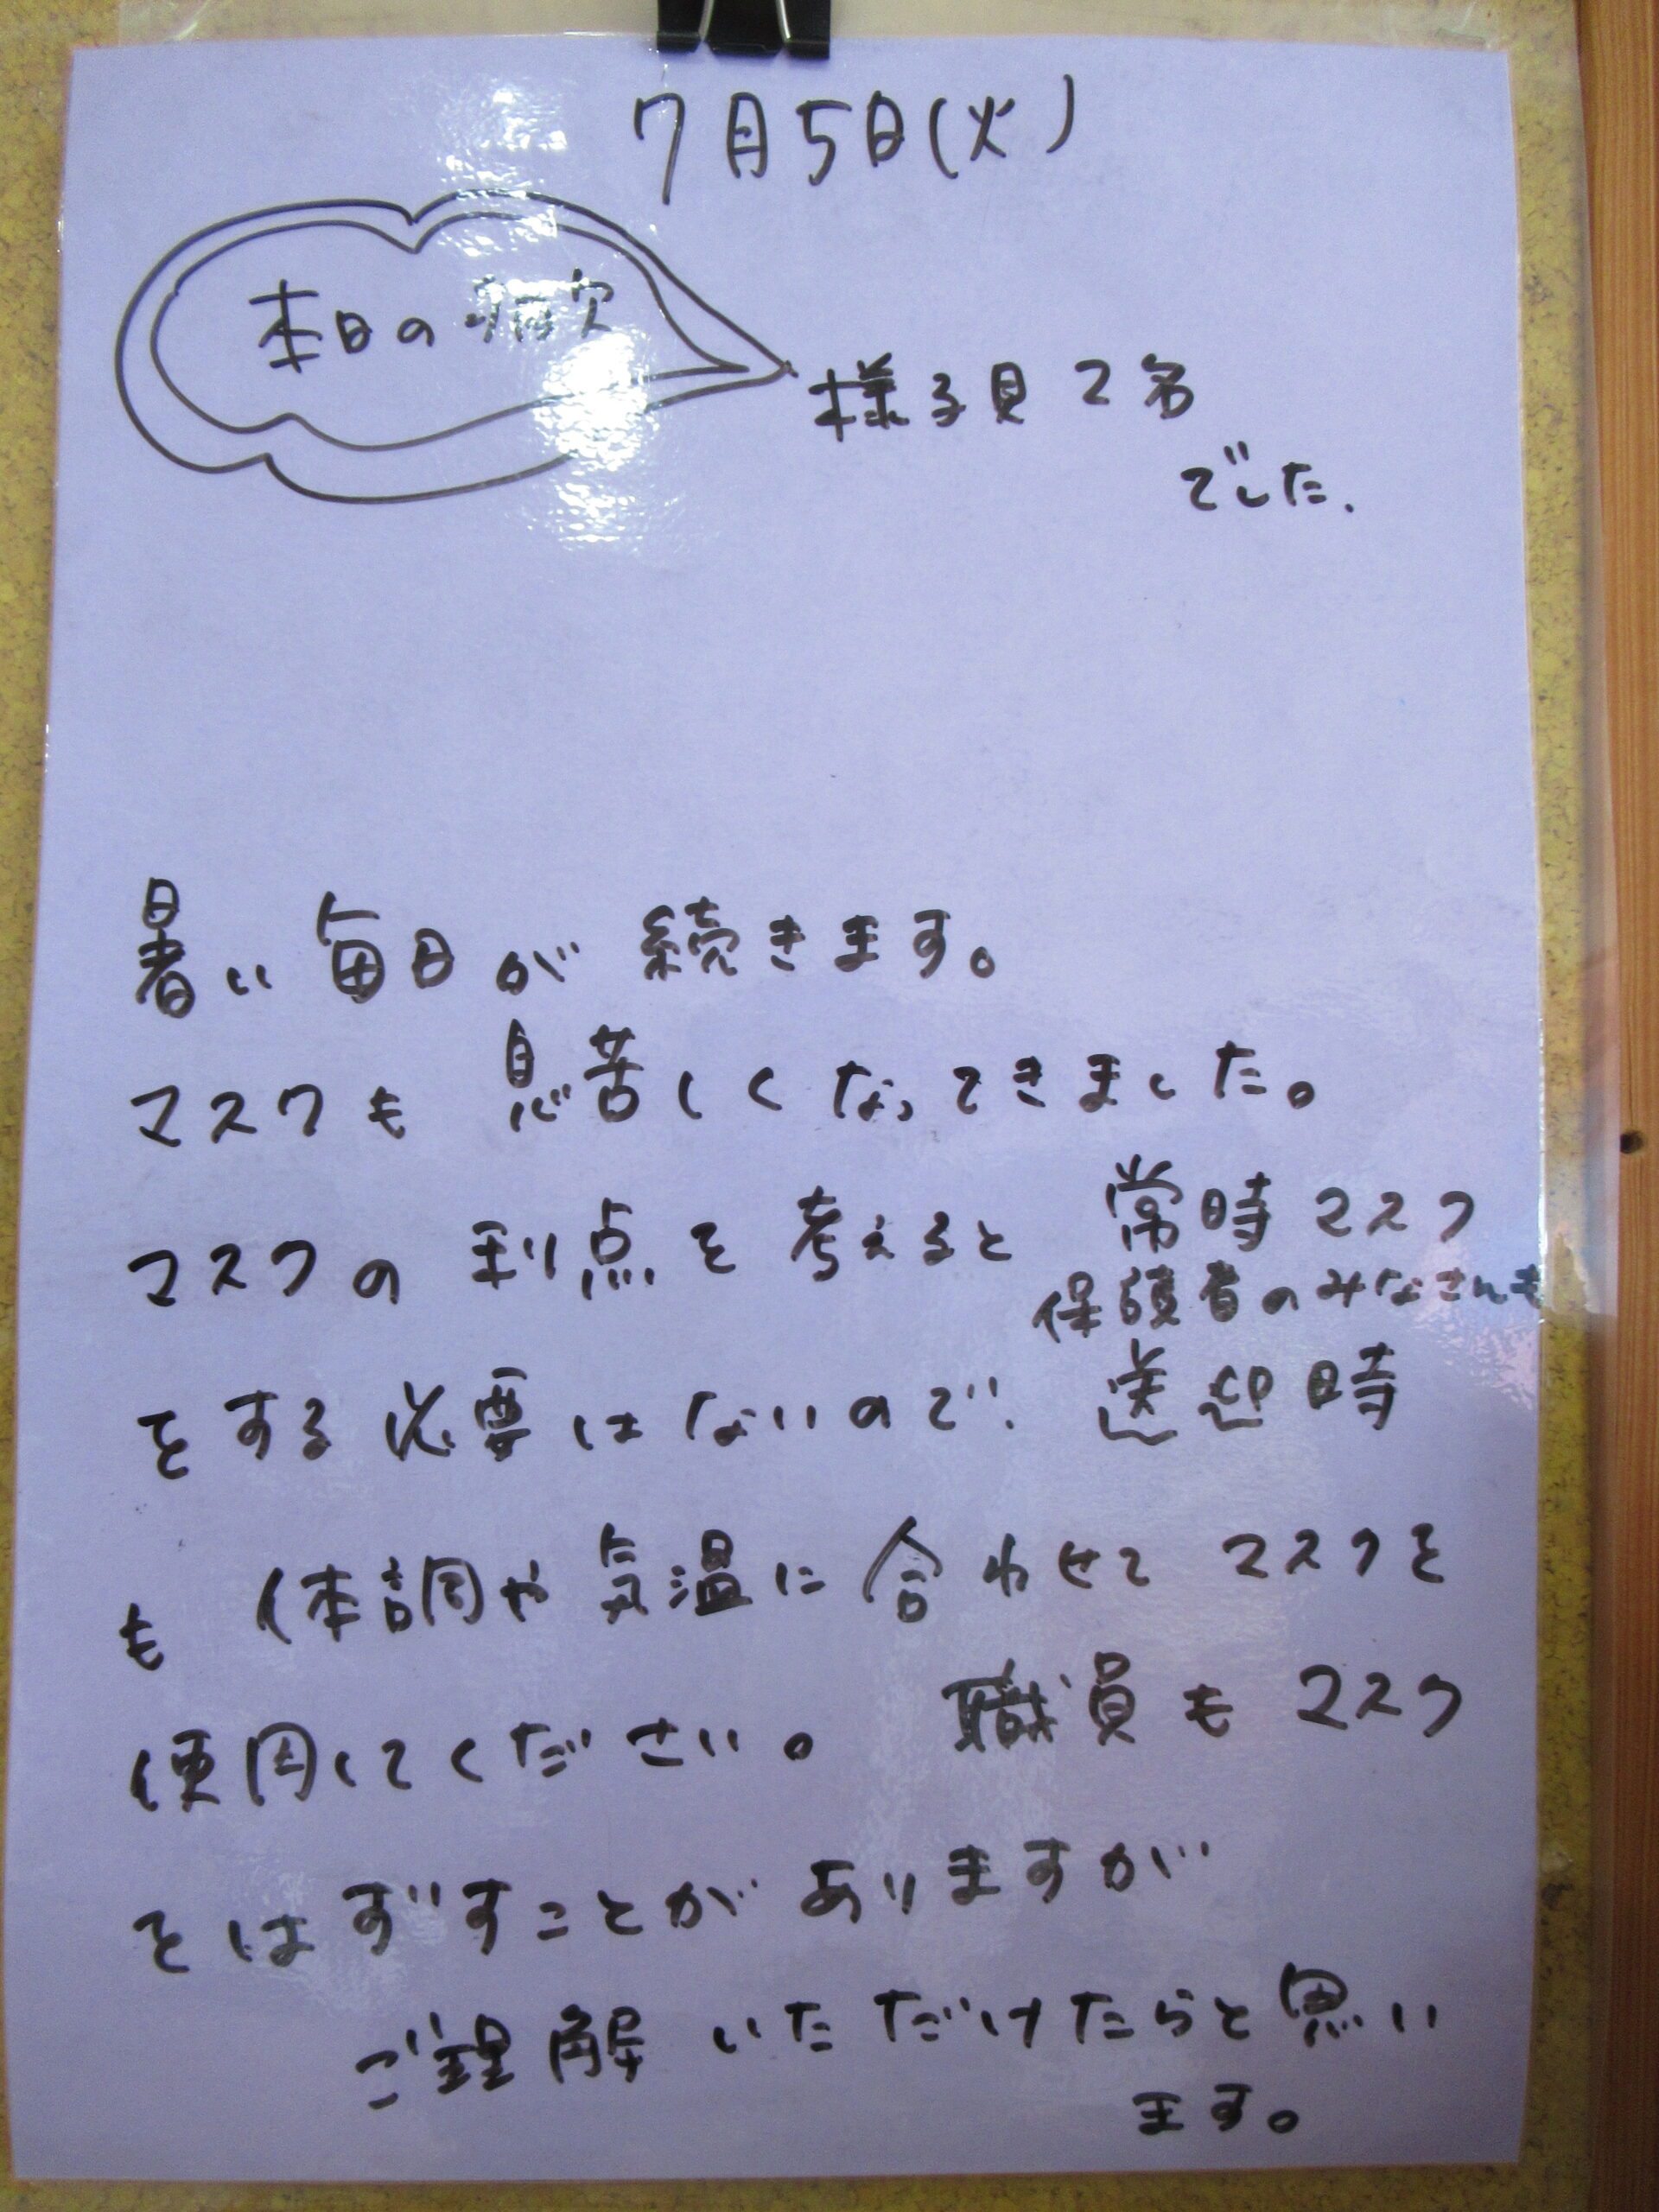 7月5日(火)
本日の病欠
様子見2名
でした.
暑い毎日が続きます。
マスクも息苦しくなってきました。
マスクの利点を考えると常時マスク
保護者のみなさんも
をする必要はないので、送迎時
も体調や気温に合わせてマスクを
使用してください。職員もマスク
をはずすことがありますが
ご理解いただけたらと思い
ます。